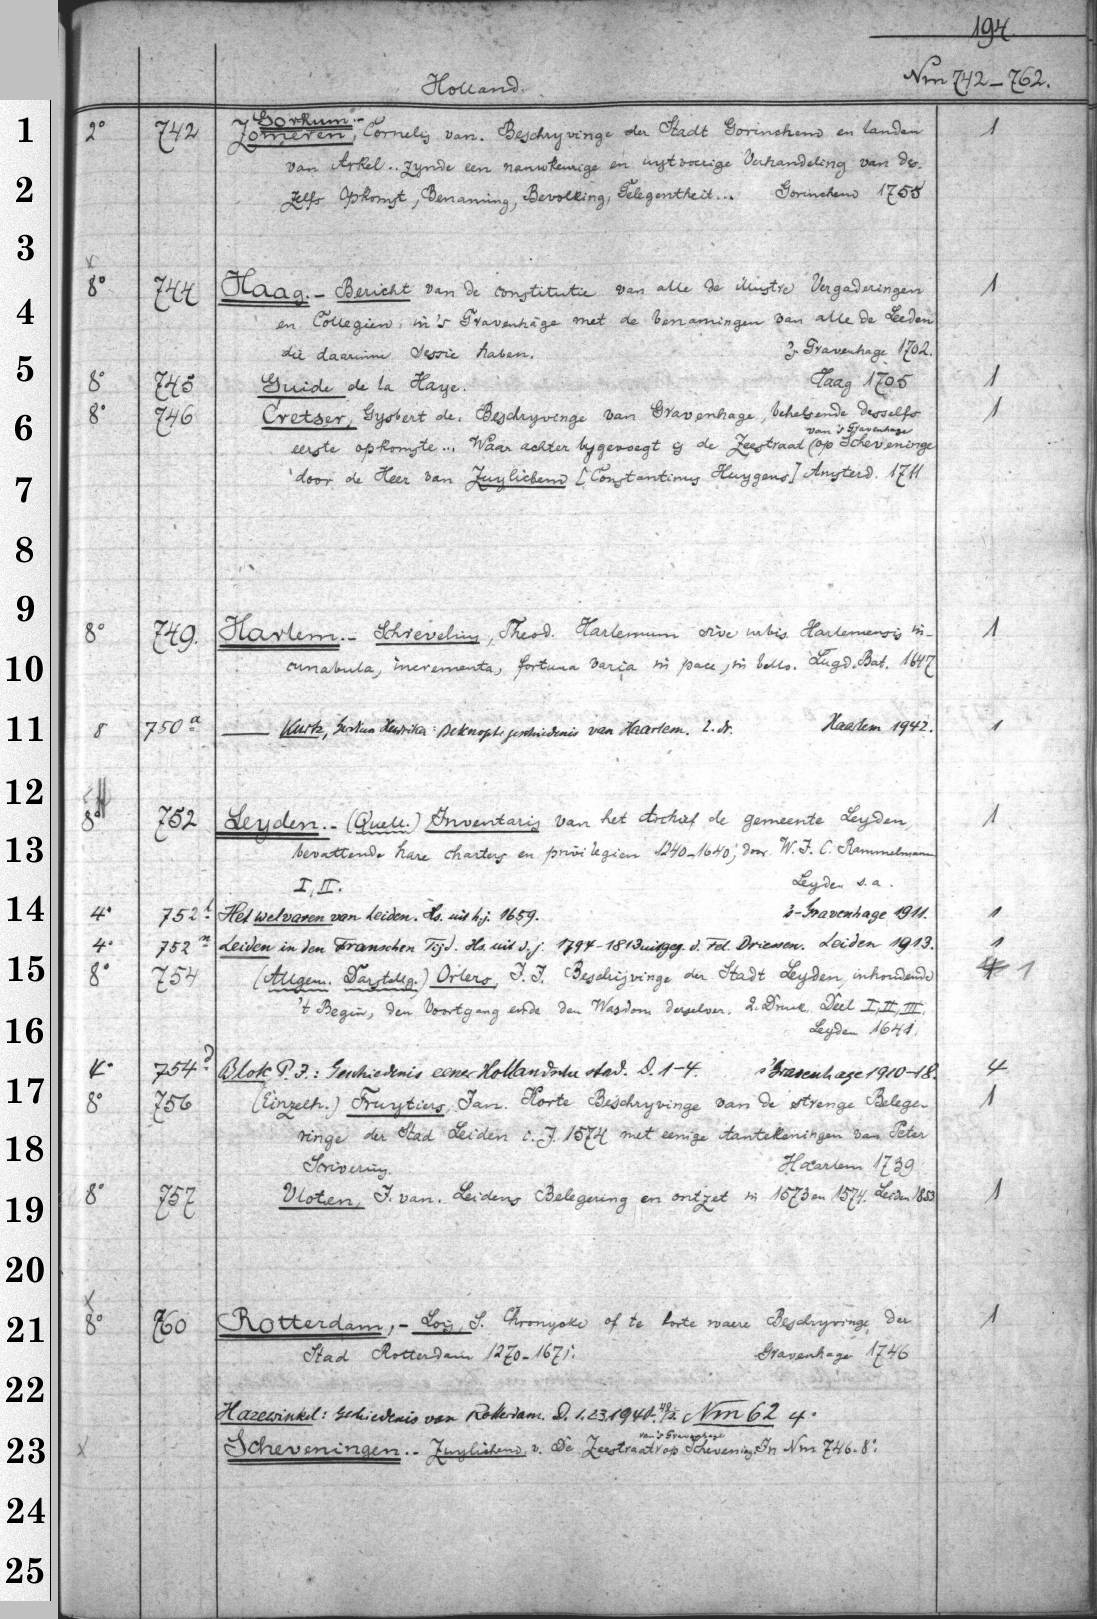 194.
Holland.
Nm 742–762.
1
Gorkum.-
2° 742 Zomeren, Cornelis van. Beschryvinge der Stadt Gorinchem en landen 1
van Arkel.. zynde een nauwkeurige en uytvoerige Verhandeling van des-
2
zelfs Opkomst, Benaming, Bevolking, Gelegentheit... Gorinchem 1755
3
x
8° 744 Haag.- Bericht van de constitutie van alle de illustre Vergaderingen 1
4
en Collegien in 's Gravenhage met de benamingen van alle de Leeden
die daarinne sessie haben. 's Gravenhage 1702.
5
8° 745 Guide de la Haye. Haag 1705 1
8° 746 Cretser, Gysbert de. Beschryvinge van Gravenhage, behelsende desselfs 1
6
van 's Gravenhage
eerste opkomste... Waar achter bygevoegt is de Zeestraat (op Scheveninge
7
door de Heer van Zuylichem [Constantinus Huygens] Amsterd. 1711
8
9
8° 749. Harlem.- Schrevelius, Theod. Harlemum sive urbis Harlemensis in- 1
10
cunabula, incrementa, fortuna varia in pace, in bello. Lugd. Bat. 1647
11
8 750 a — Kurtz, Gertrun Hendrika: Beknopte geschiedenis van Haarlem. 2. dr. Haarlem 1942. 1
12
8° 752 Leyden.- (Quell.) Inventaris van het Archief de gemeente Leyden, 1
13
bevattende hare charters en privilegien 1240–1640, door W. J. C. Rammelmann
I, II. Leyden s. a.
14
4° 752 l Het welvaren van Leiden. Hs. uit h. j. 1659. 's-Gravenhage 1911. 1
4° 752 m Leiden in den Franschen Tijd. Hs. uit d. j. 1794–1813 uitgeg. d. Fel. Driessen. Leiden 1913. 1
15
8° 754 (Allgem. Darstellg.) Orlers, J. J. Beschrijvinge der Stadt Leyden, inhoudende 1
't Begin, den Voortgang ende den Wasdom derselver. 2. Druck. Deel I, II, III.
16
Leyden 1641.
4° 754 d Blok P. J.: Geschiedenis eener Hollandsche stad. D. 1–4. 's Gravenhage 1910–18. 4
17
8° 756 (Einzelh.) Fruytiers, Jan. Korte Beschryvinge van de strenge Belege- 1
18
ringe der Stad Leiden i. J. 1574 met eenige Aantekeningen van Peter
Scriverius. Haarlem 1739
19
8° 757 Vloten, J. van. Leidens Belegering en ontzet in 1573 en 1574. Leiden 1853 1
20
x
21
8° 760 Rotterdam,- Lois, S. Chronycke of te korte waere Beschryvinge der 1
Stad Rotterdam 1270–1671. Gravenhage 1746
22
Hazewinkel: Geschiedenis van Rotterdam. D. 1. 2 3. 1940. Nm 62 4°
23
van 's Gravenhage
x Scheveningen.- Zuylichem, v. De Zeestraat op Schevening. In Nm 746. 8°.
24
25